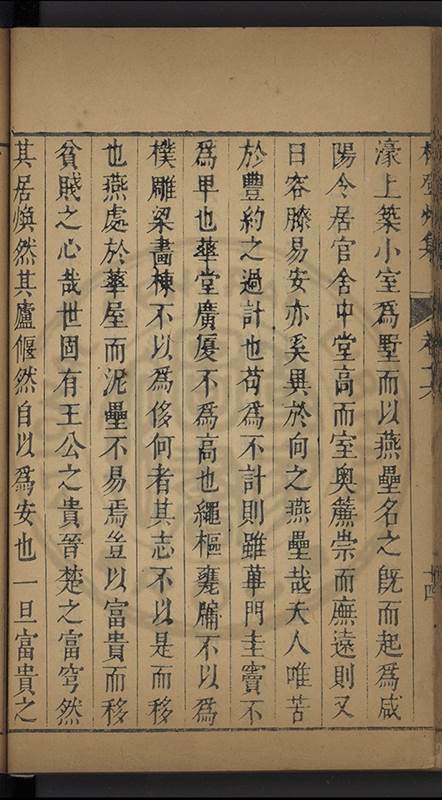 濠上築小室爲墅而以燕壘名之旣而起爲咸
陽令居官舍中堂高而室奧簾崇而廡遠則又
曰容膝易安亦奚異於向之燕壘哉夫人唯苦
於豐約之過計也苟爲不計則雖蓽門圭竇不
爲卑也華堂廣廈不爲高也繩樞甕牖不以爲
樸雕梁畵棟不以爲侈何者其志不以是而移
也燕處於華屋而泥壘不易焉豈以富貴而移
貧賤之心哉世固有王公之貴晉楚之富穹然
其居煥然其廬偃然自以爲安也一旦富貴之